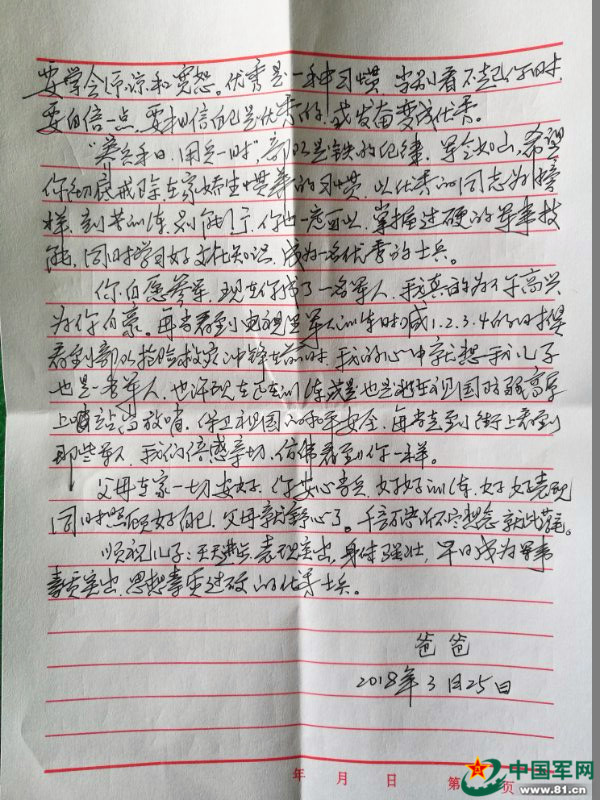 要学会原谅和宽恕。优秀是一种习惯,当别看不起你时,
要自信一点,要相信自己是优秀的,或发奋变成优秀。
"养兵千日,用兵一时"部队是铁的纪律,军令如山,希望
你彻底戒除在家娇生惯养的习惯,以优秀的同志为榜
样,刻苦训练,别人能行,你也一定可以,掌握过硬的军事技
能,同时学习好文化知识,成为一名优秀的士兵。
你自愿参军,现在你成了一名军人,我真的为你高兴
为你自豪。每当看到电视里军人训练时喊1.2.3.4的时候
看到部队抢险救灾冲锋在前时,我的心中就想我儿子
也是一名军人,也许现在正在训练或是也是在祖国的高原
上站高放哨,保卫祖国的和平安全,每当走到街上看到
那些军人,我们倍感亲切,仿佛看到你一样。
父母在家一切安好,你安心当兵,好好训练,好好表现
同时照顾好自己,父母就放心了。千言万语诉不尽想念就此落笔。
顺祝儿子:天天进步表现突出,身体强壮,早日成为军事
素质突出,思想素质过硬的优秀士兵。
爸爸
2018年3月25日
年 月 日 第 页
中国军网
www.81.cn